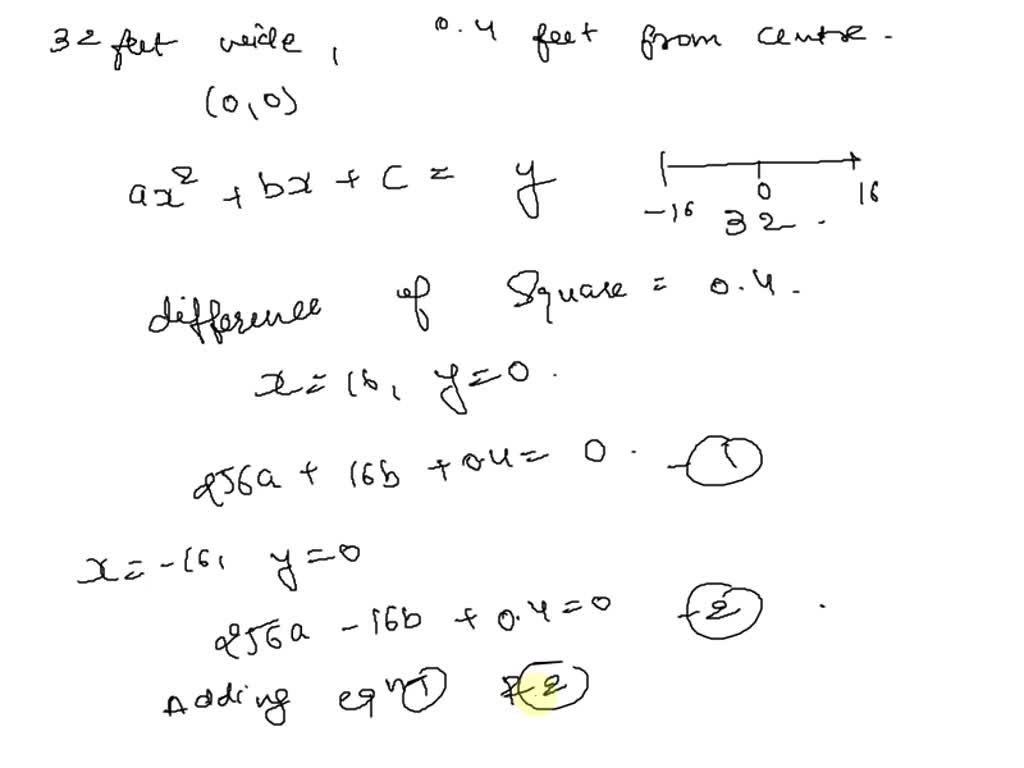 32 feet wide, 0.4 feet from centre.
(0,0)
ax² + bx + c = y
-16 0 16
32.
difference of Square = 0.4.
x = 16, y = 0.
256a + 16b + 0.4 = 0. - ①
x = -16, y = 0
256a - 16b + 0.4 = 0 - ②
Adding eqn ① & ②